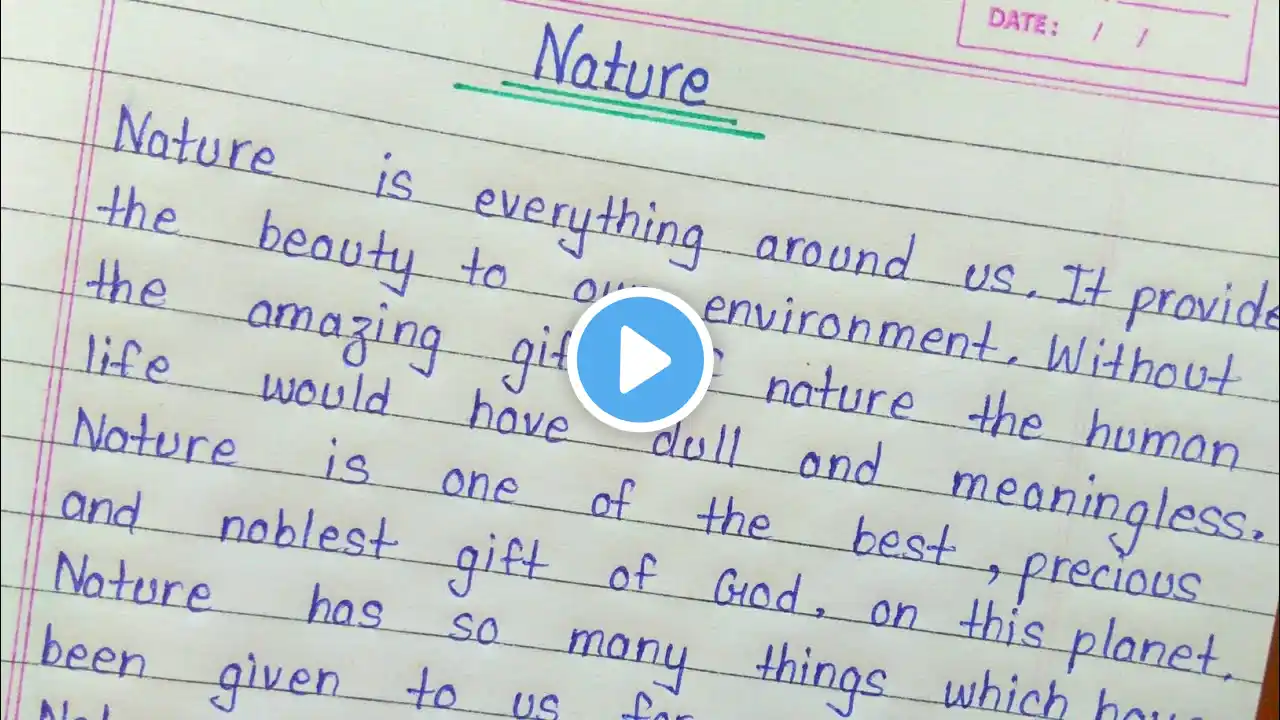 DATE: / /
Nature
Nature is everything around us. It provide
the beauty to our environment. Without
the amazing nature the human
life would have dull and meaningless.
Nature is one of the best, precious
and noblest gift of God, on this planet.
Nature has so many things which have
been given to us for